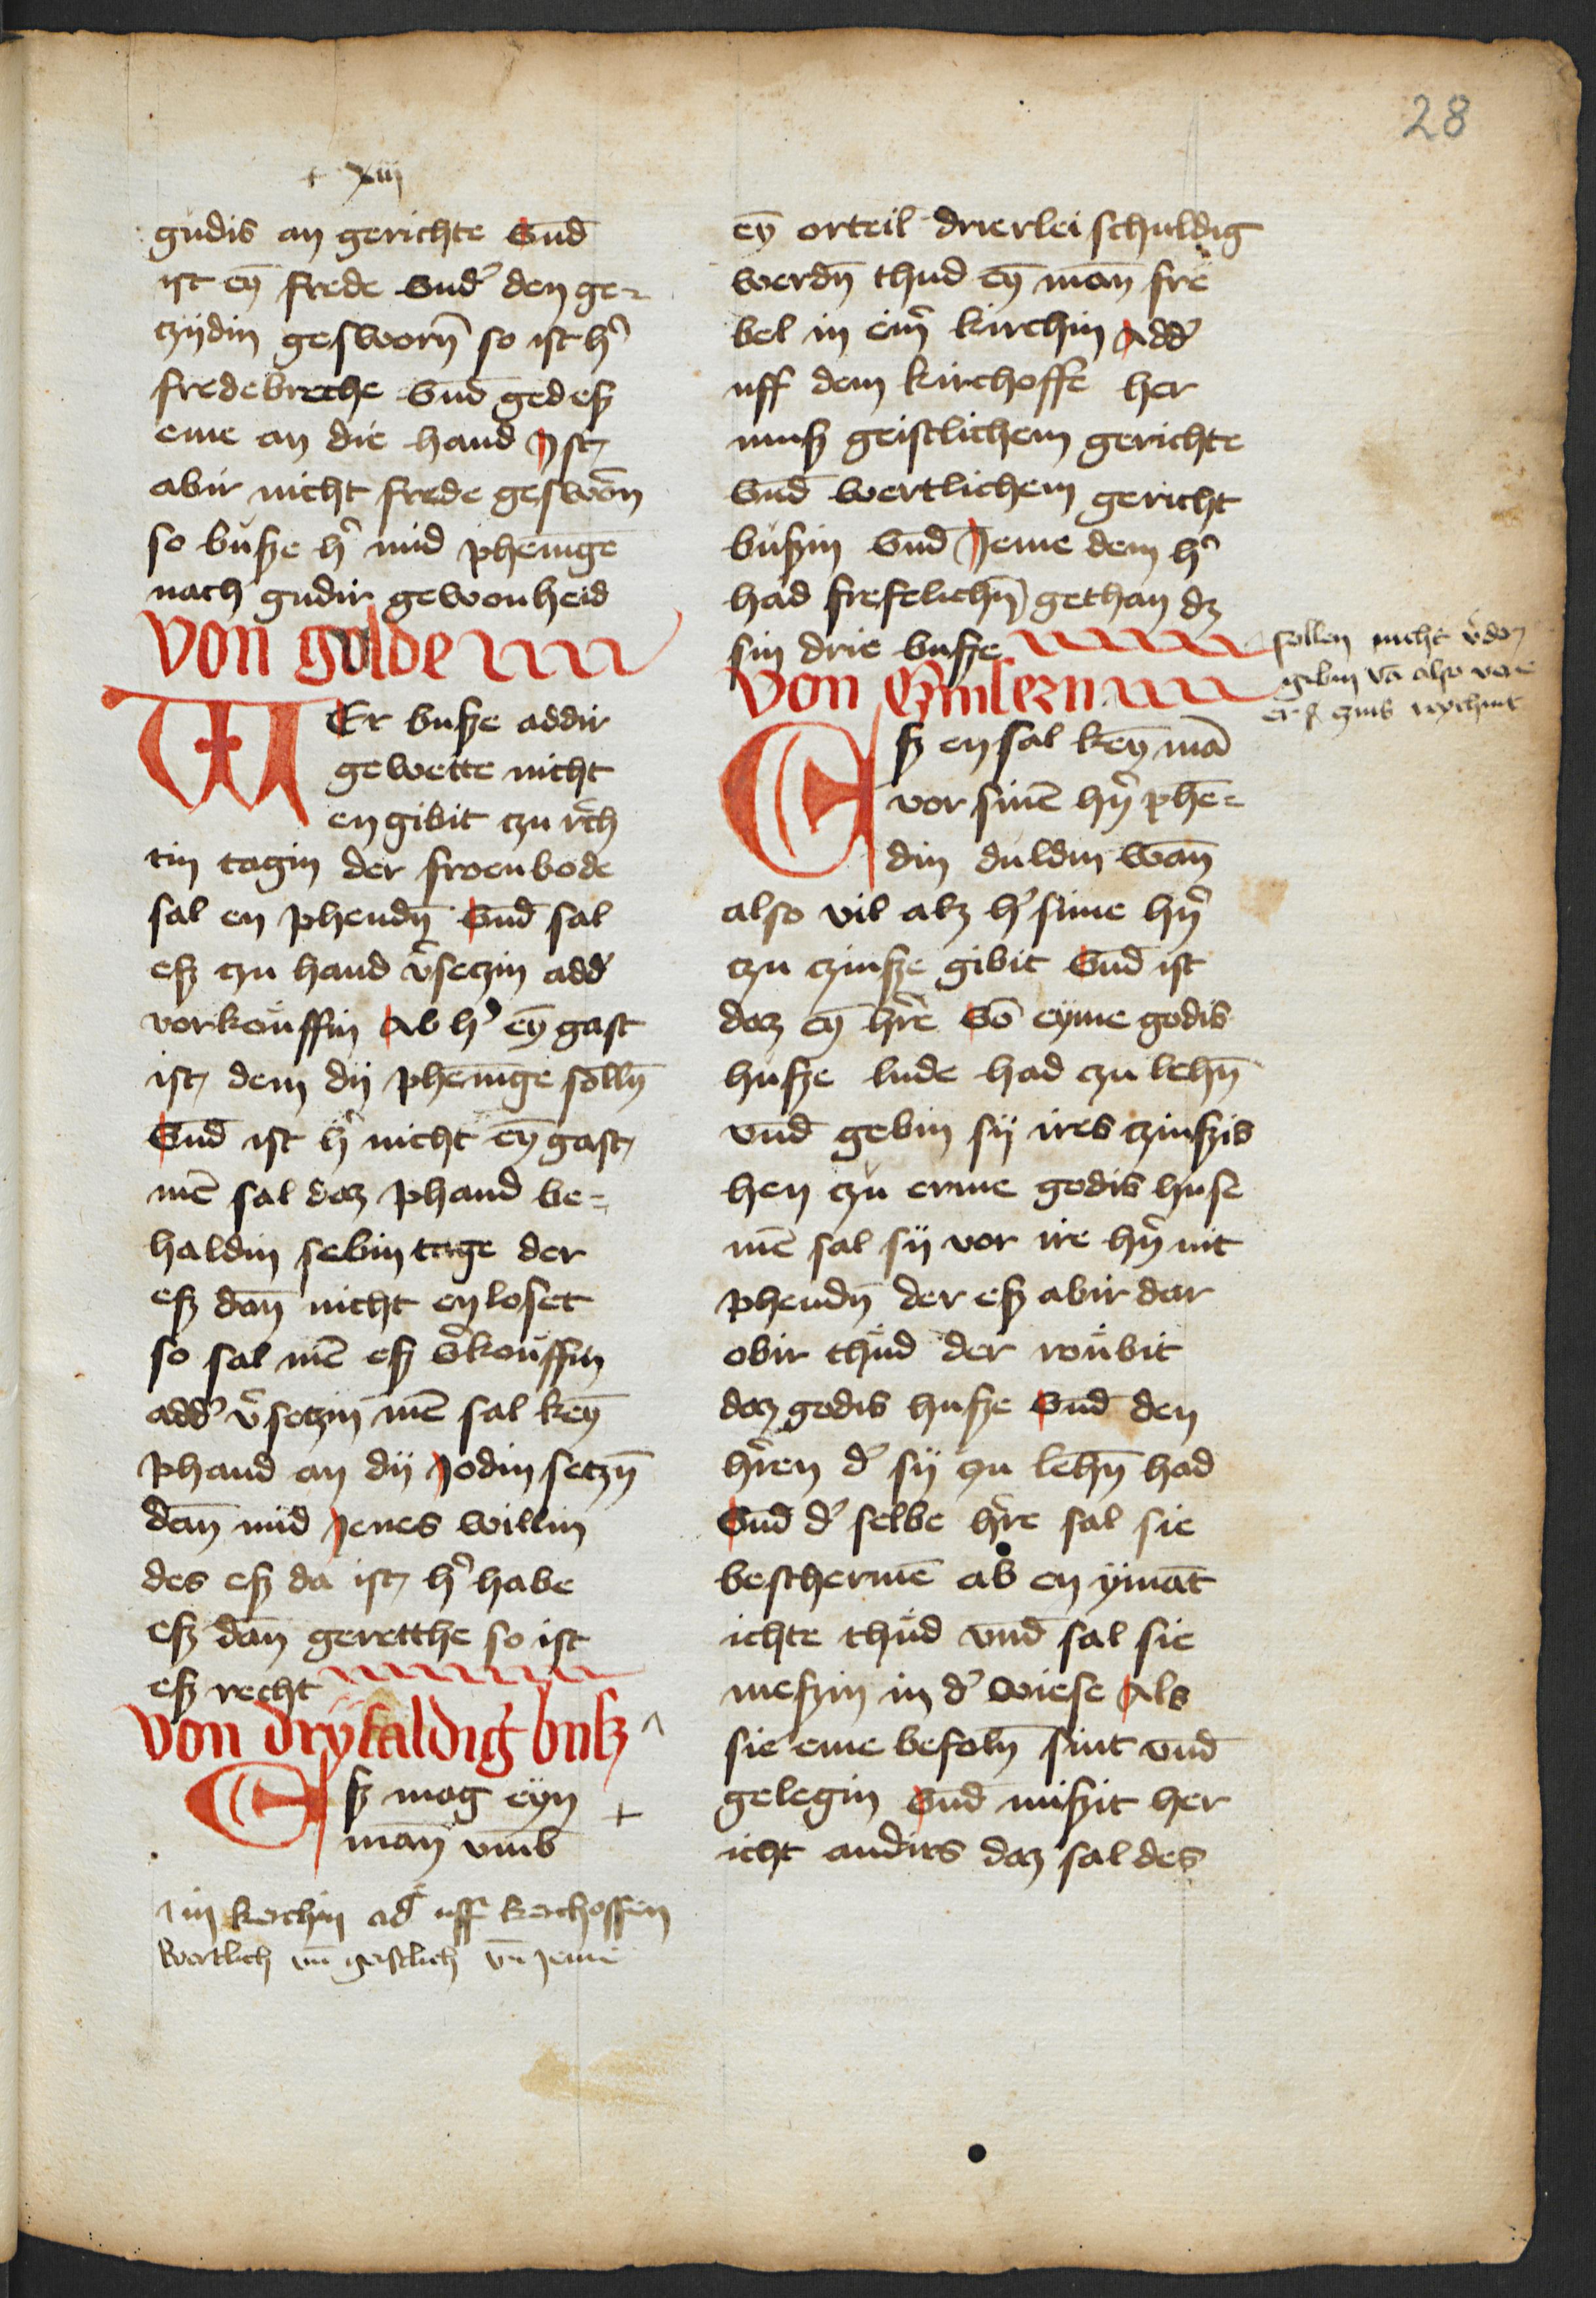 28
+ xiij
gudis an gerichte vnd̄
ist eȳ frede vnd' den ge=
czijdin gesworn̄ so ist h'
fredebreche vnd̄ ged esz
eme an die hand Jst
abir nicht frede gesworn
so busze h' mid phenīge
nach gudir gewonheid
von golde
WEr busze addir
gewette nicht
en gibit czu rech
tin tagin der fronbode
sal en phendn̄ vnd̄ sal
esz czu hand v'seczin add'
vorkouffin Ab h' eȳ gast
ist dem dij phenīge solln̄
vnd̄ ist h' nicht eȳ gast
mē sal daz phand be=
haldin sebin tage der
esz dan̄ nicht en loset
so sal mē esz v'kouffin
add' v'seczin mē sal keȳ
phand an dij Jodin seczn̄
dan̄ mid Jenes willin
des esz da ist h' habe
esz dan̄ geretthe so ist
esz recht
von dryfaldig busz ^
Esz mag eyn +
man̄ vmb
^ in kerchin ad' uff kerchoffen
wertlich vn̄ geistlich vn̄ jeme
eȳ orteil drierlei schuldig
werdn̄ thud eȳ man̄ fre
bel in ein' kirchin Add'
uff dem kirchoffe her
musz geistlichem gerichte
vnd̄ wertlichem gericht
buszin vnd̄ Jeme dem h'
had frefelichn̄ gethan dz
sin drie busze
von Czinsern
sollen nicht v'der
er
Esz en sal keȳ mā
vor sinē hn̄' phē=
din duldin wan̄
also vil alz h' sime hn̄'
czu czinsze gibit vnd̄ ist
daz eȳ h're vō eyme godis
husze lude had czu lehn̄
vnd̄ gebin sij ires czinszis
hen czu erme godis huse
mē sal sij vor ire hn̄' nit
phendn̄ der esz abir dar
obir thud der roubit
daz godis husze vnd̄ den
h'ren d' sij czu lehn̄ had
vnd̄ d' selbe h're sal sie
beschermē ab en ymāt
ichte thud vnd̄ sal sie
nieszin in d' wiese Als
sie eme befoln̄ sint vnd̄
gelegin vnd̄ niszit her
icht andirs daz sal des